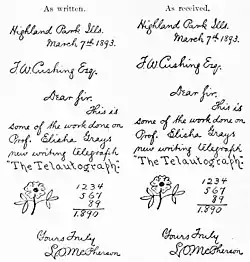 As written.
Highland Park Ills.
March 7th 1893.
F W Cushing Esq.
Dear Sir.
This is
some of the work done on
Prof. Elisha Grays
new writing telegraph
"The Telautograph."
1234
567
89
1890
Yours Truly
L O McPherson
As received.
Highland Park Ills.
March 7th 1893.
F W Cushing Esq.
Dear Sir.
This is
some of the work done on
Prof. Elisha Grays
new writing telegraph
"The Telautograph."
1234
567
89
1890
Yours Truly
L O McPherson